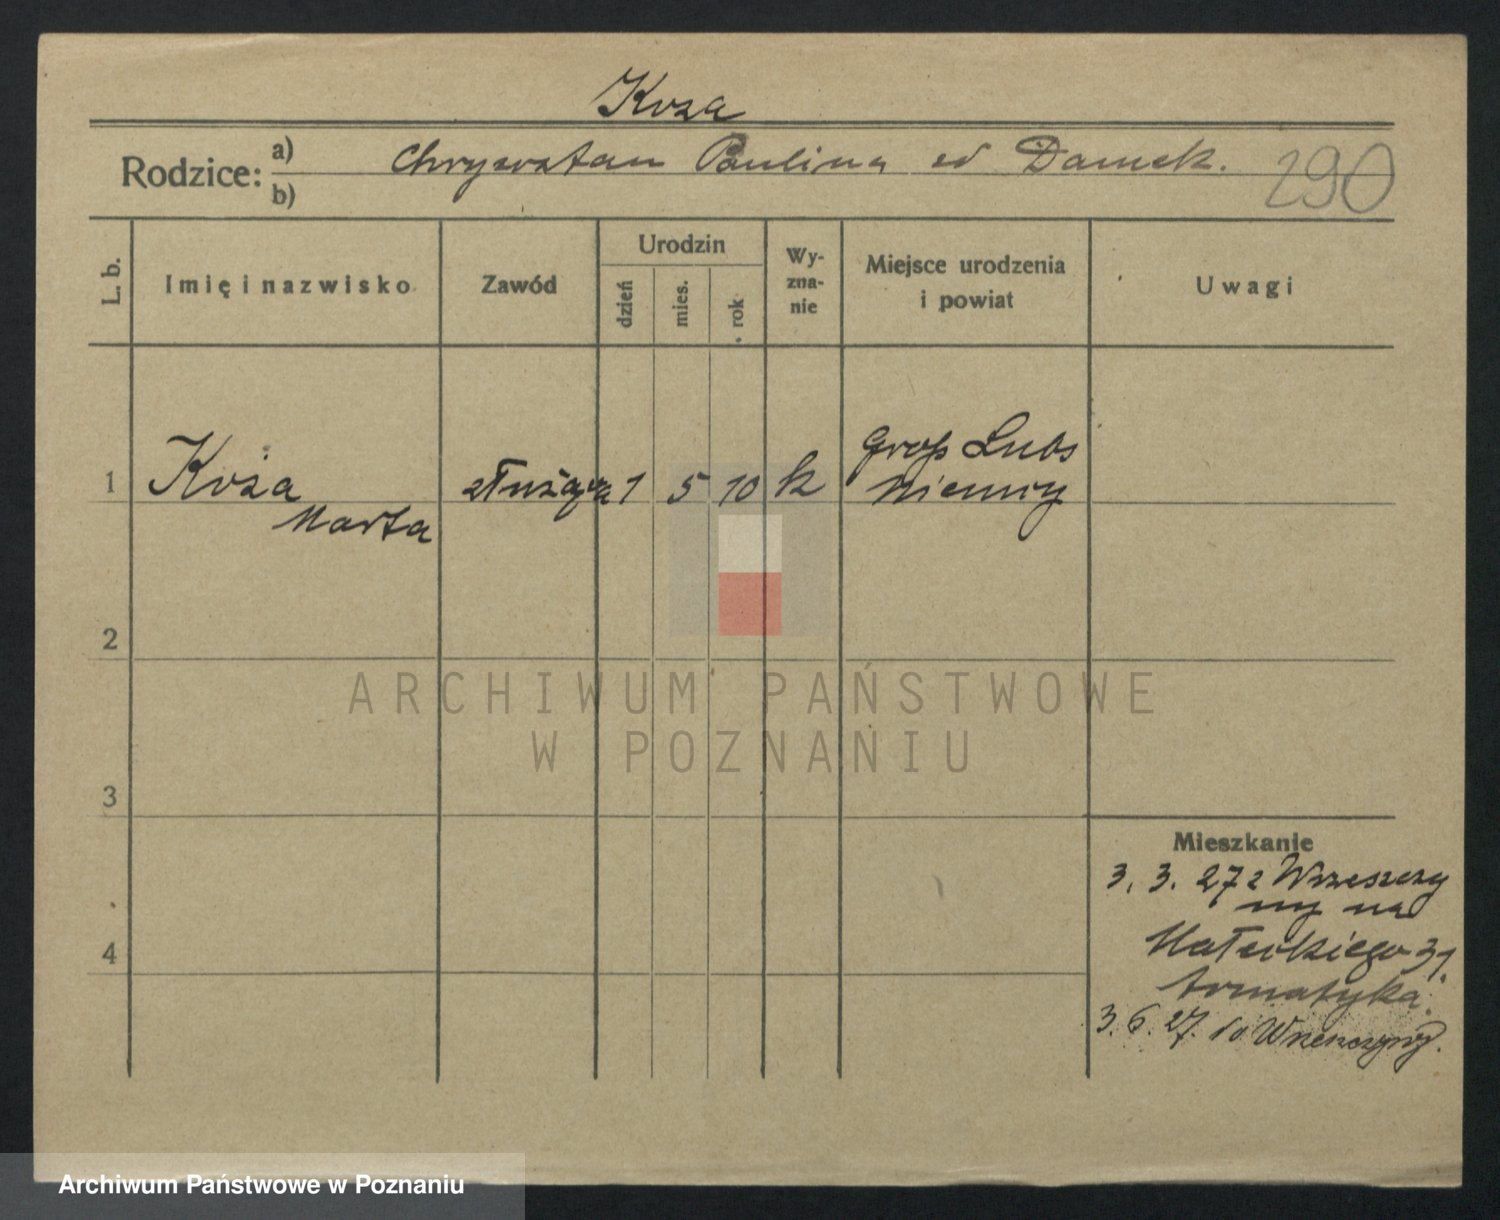 Koza
Rodzice: a) Chryzostan Paulina od Damek.
b)
290
L. b.
Imię i nazwisko
Zawód
Urodzin
dzień
mies.
rok
Wy-
zna-
nie
Miejsce urodzenia
i powiat
Uwagi
1
Koza
Marta
służąca
1 5 10
k
Gross Lubs
Niemcy
2
3
4
ARCHIWUM PAŃSTWOWE
W POZNANIU
Mieszkanie
3. 3. 27 z Wrzeszczy
ny na
Małeckiego 31
3. 6. 27. do Wrzeszczyny.
Archiwum Państwowe w Poznaniu